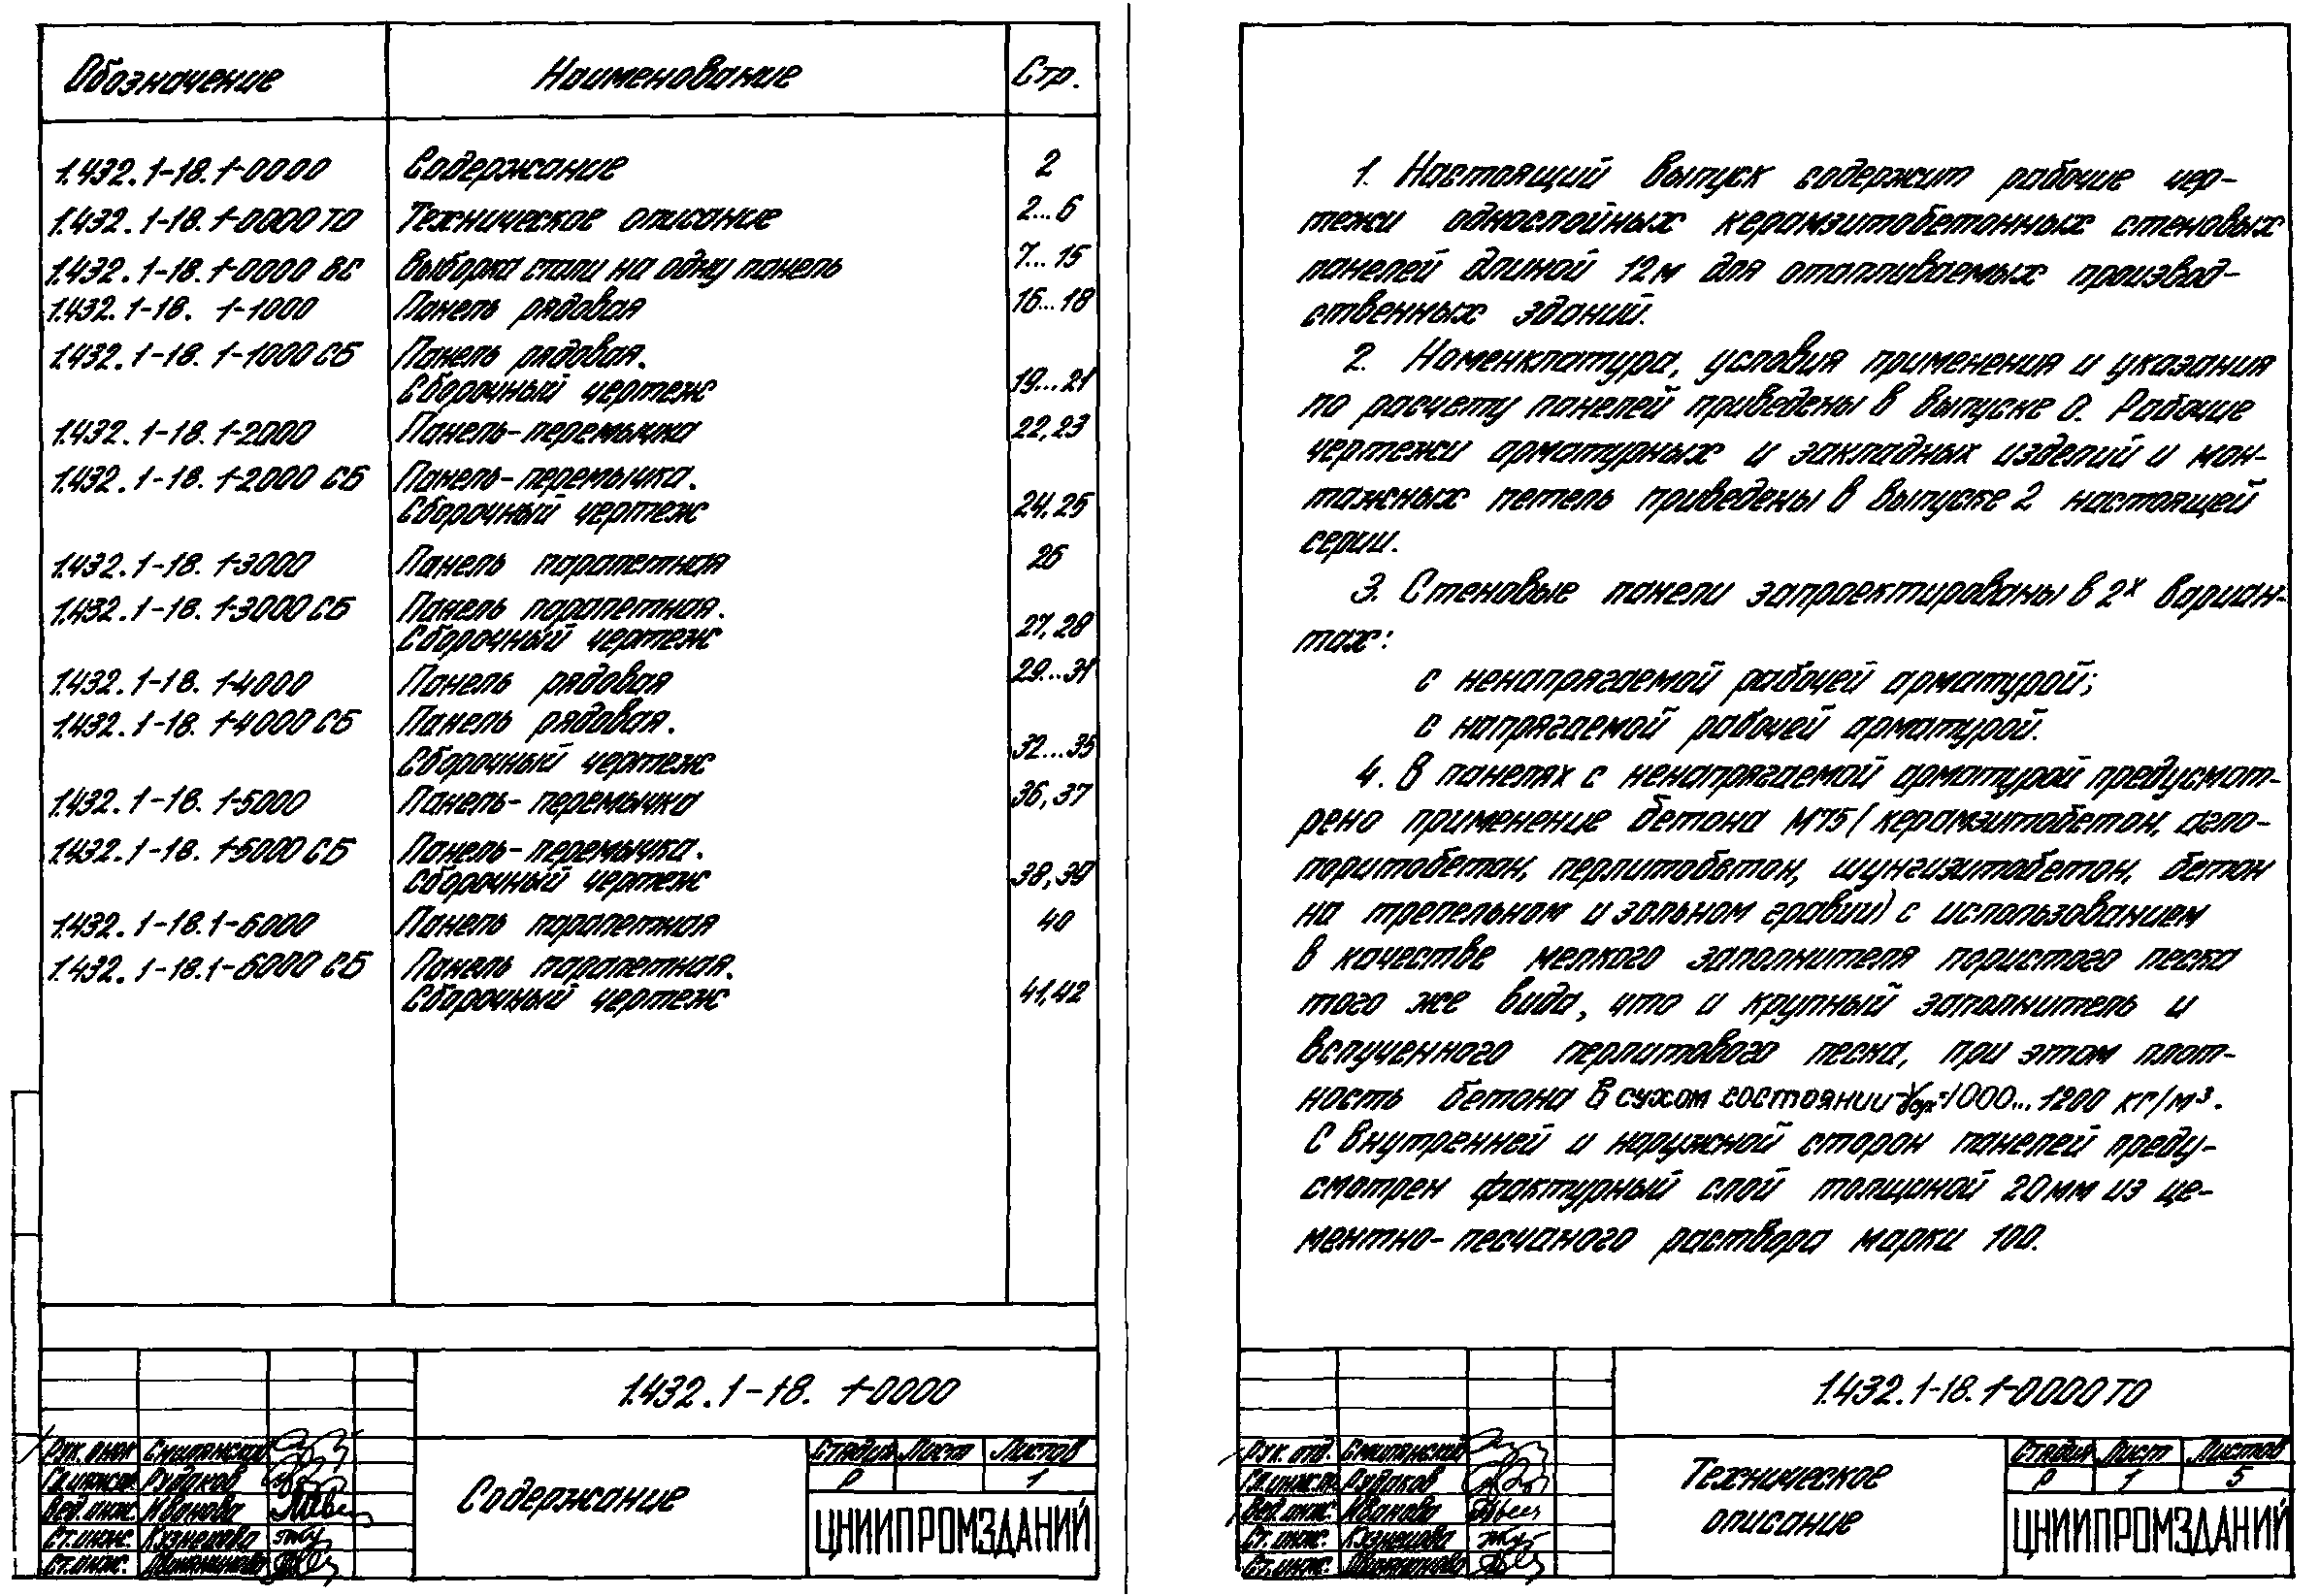 Обозначение Наименование Стр.
1.432.1-18.1-0000 Содержание 2
1.432.1-18.1-0000 ТО Техническое описание 2...6
1.432.1-18.1-0000 ВС Выборка стали на одну панель 7...15
1.432.1-18.1-1000 Панель рядовая 16...18
1.432.1-18.1-1000 СБ Панель рядовая.
Сборочный чертеж 19...21
1.432.1-18.1-2000 Панель-перемычка 22,23
1.432.1-18.1-2000 СБ Панель-перемычка.
Сборочный чертеж 24,25
1.432.1-18.1-3000 Панель парапетная 26
1.432.1-18.1-3000 СБ Панель парапетная.
Сборочный чертеж 27,28
1.432.1-18.1-4000 Панель рядовая 29...31
1.432.1-18.1-4000 СБ Панель рядовая.
Сборочный чертеж 32...35
1.432.1-18.1-5000 Панель-перемычка 36,37
1.432.1-18.1-5000 СБ Панель-перемычка.
Сборочный чертеж 38,39
1.432.1-18.1-6000 Панель парапетная 40
1.432.1-18.1-6000 СБ Панель парапетная.
Сборочный чертеж 41,42
1.432.1-18.1-0000
Рук. Смилянский
Рудаков
Вед.инж. Иванова
Ст.инж. Кузнецова
Ст.инж.
Содержание
Стадия Лист Листов
Р 1
ЦНИИПРОМЗДАНИЙ
1. Настоящий выпуск содержит рабочие чер-
тежи однослойных керамзитобетонных стеновых
панелей длиной 12м для отапливаемых производ-
ственных зданий.
2. Номенклатура, условия применения и указания
по расчету панелей приведены в выпуске 0. Рабочие
чертежи арматурных и закладных изделий и мон-
тажных петель приведены в выпуске 2 настоящей
серии.
3. Стеновые панели запроектированы в 2х вариан-
тах:
с ненапрягаемой рабочей арматурой;
с напрягаемой рабочей арматурой.
4. В панелях с ненапрягаемой арматурой предусмот-
рено применение бетона М75 (керамзитобетон, агло-
поритобетон, перлитобетон, шунгизитобетон, бетон
на трепельном и зольном гравии) с использованием
в качестве мелкого заполнителя пористого песка
того же вида, что и крупный заполнитель и
вспученного перлитового песка, при этом плот-
ность бетона в сухом состоянии - 1000...1200 кг/м³.
С внутренней и наружной сторон панелей преду-
смотрен фактурный слой толщиной 20мм из це-
ментно-песчаного раствора марки 100.
1.432.1-18.1-0000 ТО
Рук. отд. Смилянский
Рудаков
Вед.инж. Иванова
Ст.инж. Кузнецова
Ст.инж.
Техническое
описание
Стадия Лист Листов
Р 1 5
ЦНИИПРОМЗДАНИЙ